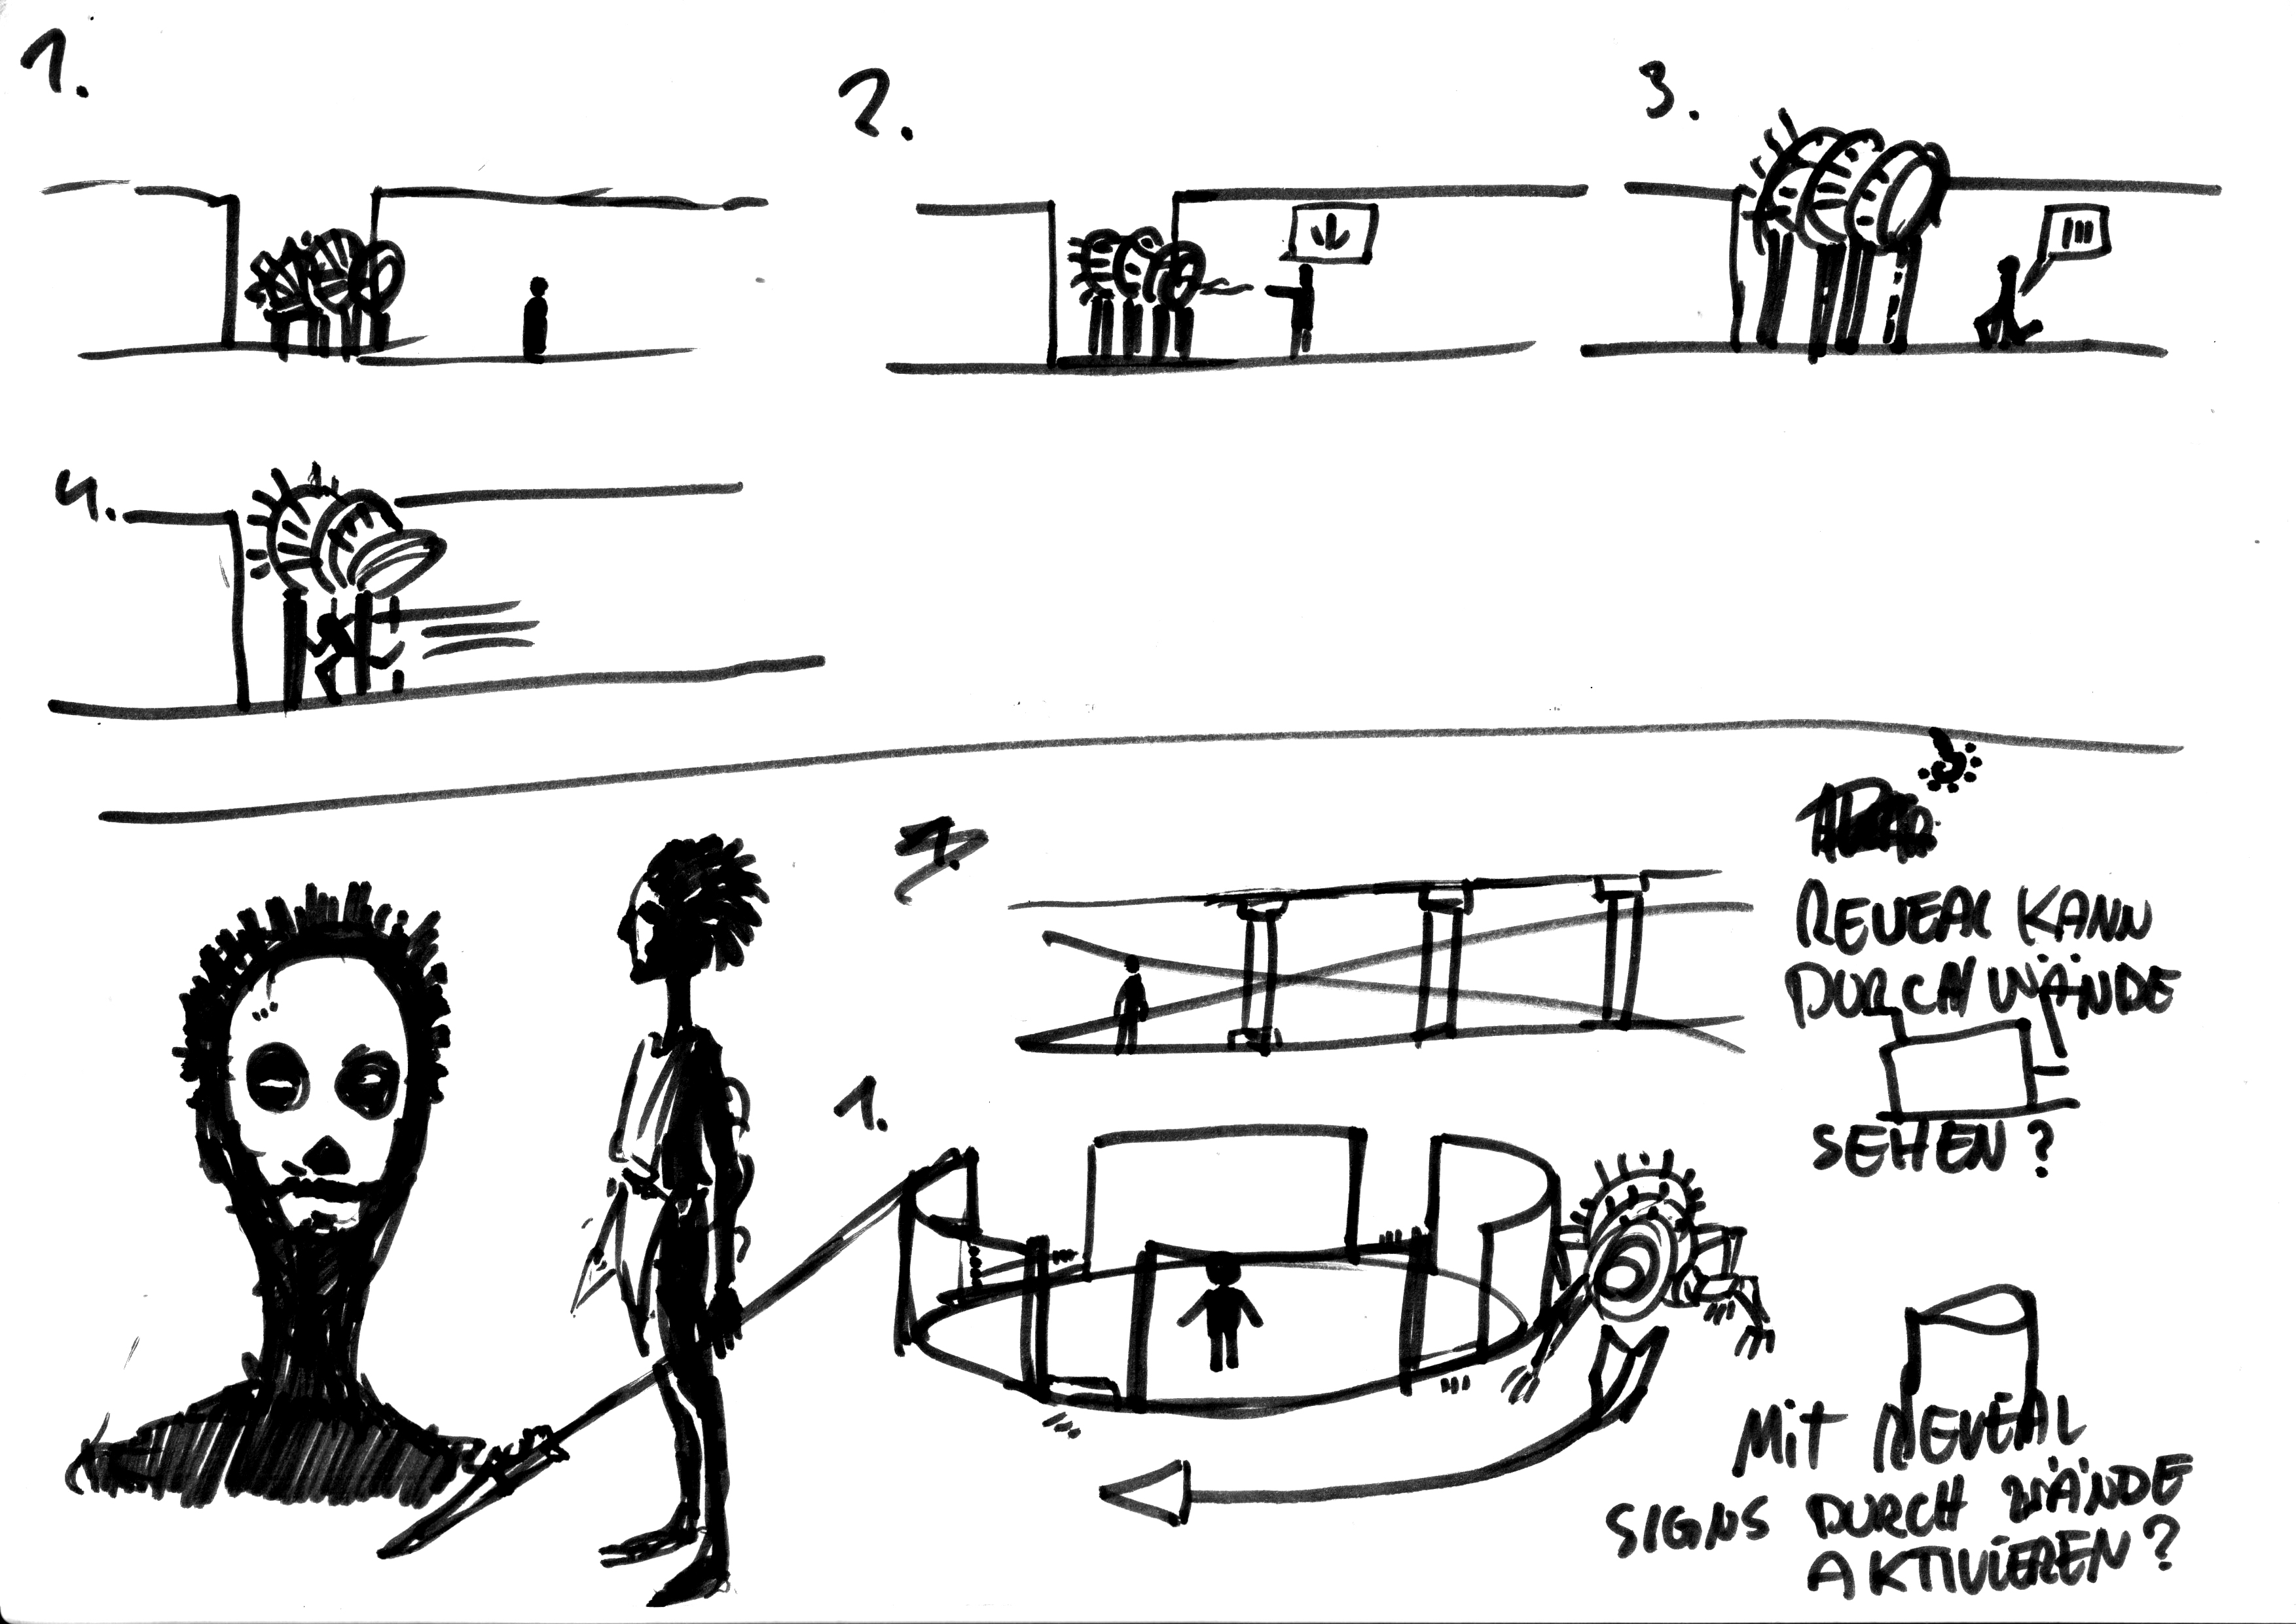 1.
2.
3.
4.
REVEAL KANN
DURCH WÄNDE
SEHEN?
1.
MIT REVEAL
SIGNS DURCH WÄNDE
AKTIVIEREN?